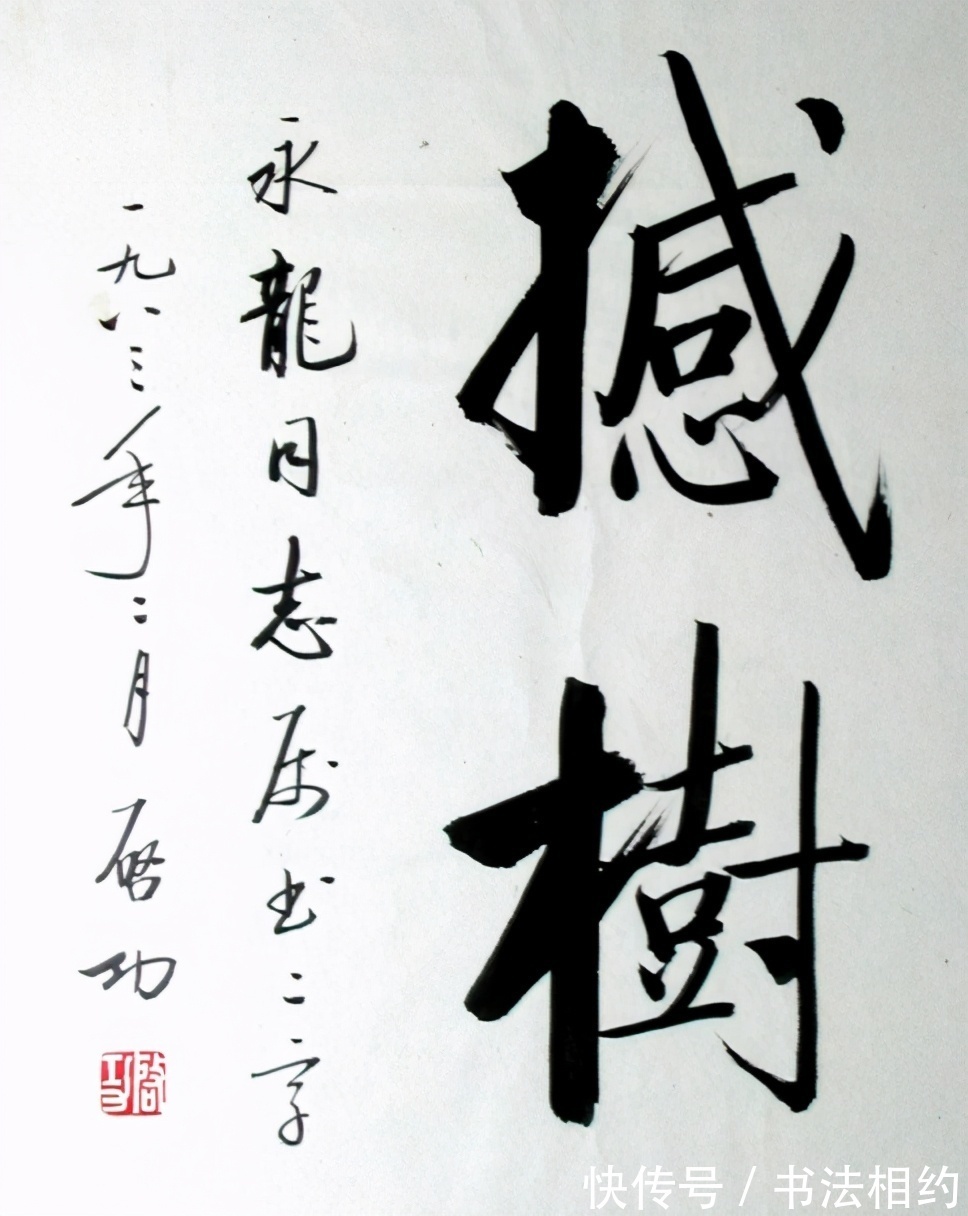 撼樹
永龍同志属书二字
一九八三年二月 启功
啟功
快传号 / 书法相约